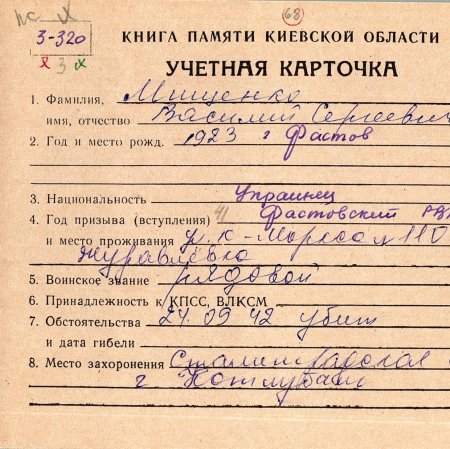 68
3-320
3
КНИГА ПАМЯТИ КИЕВСКОЙ ОБЛАСТИ
УЧЕТНАЯ КАРТОЧКА
1. Фамилия, Мищенко
имя, отчество Василий Сергеевич
2. Год и место рожд. 1923 г Фастов
3. Национальность Украинец
4. Год призыва (вступления) 41 Фастовский РВК
и место проживания ул. К-Маркса №110
Журавлёвка
5. Воинское звание рядовой
6. Принадлежность к КПСС, ВЛКСМ
7. Обстоятельства 27 09 42 убит
и дата гибели
8. Место захоронения Сталинградская
г Котлубань